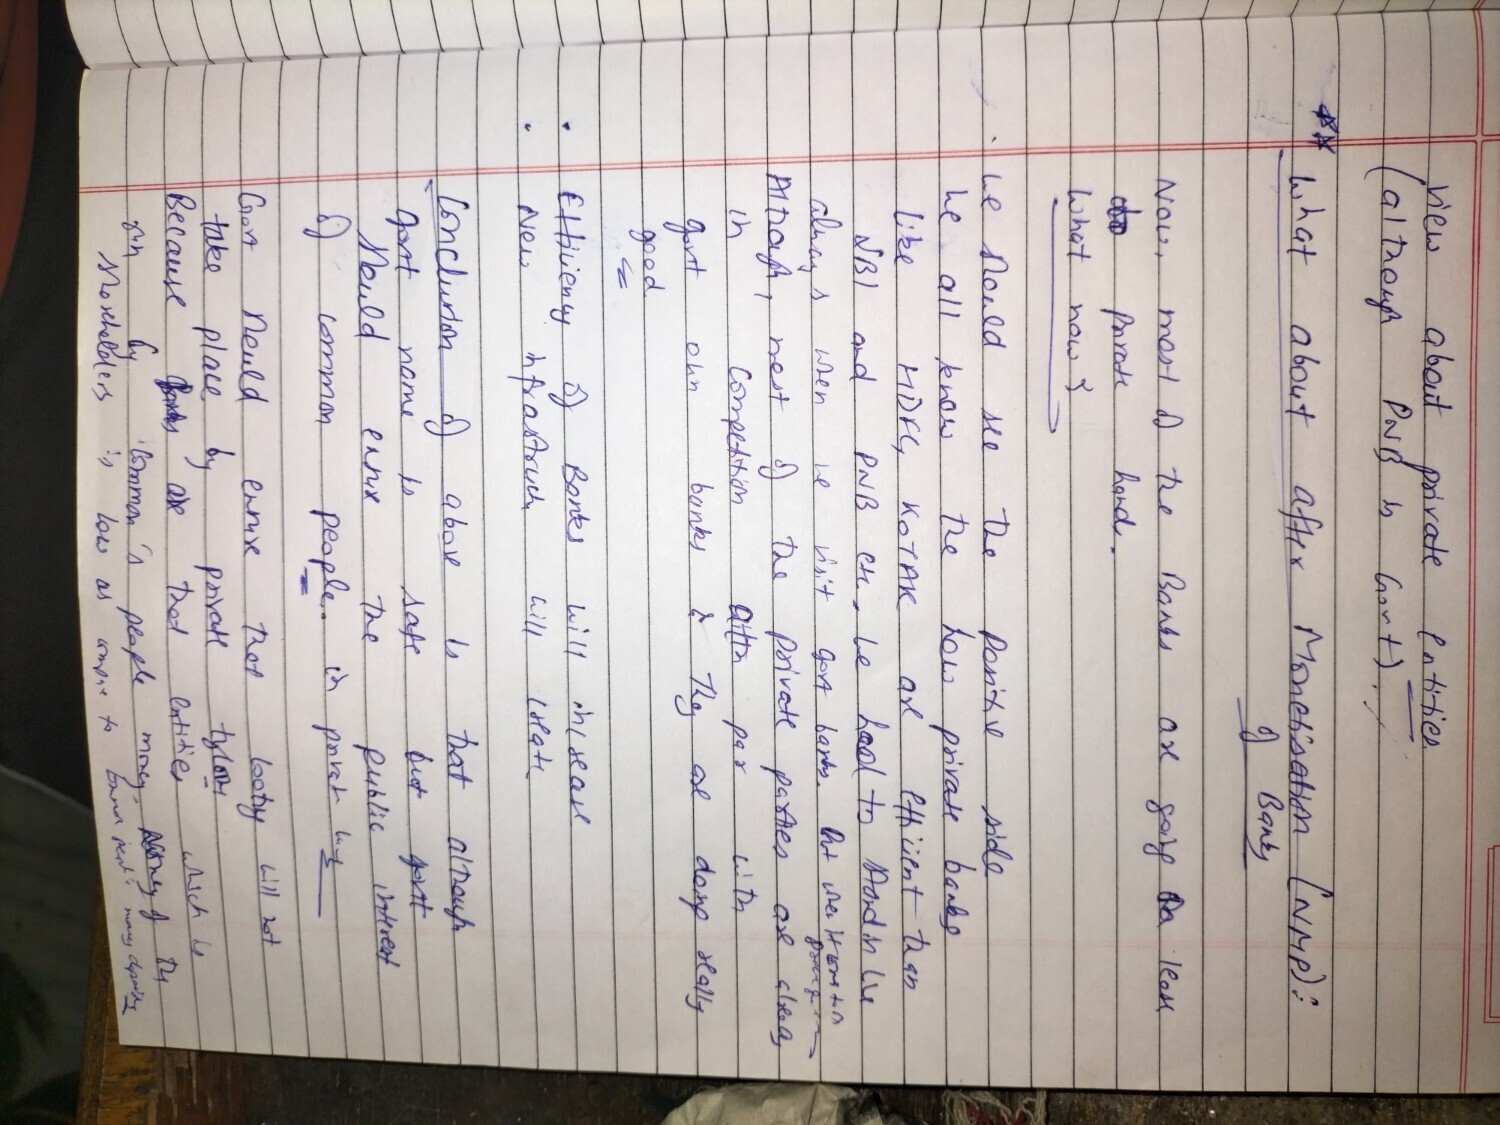 View about private Entities
(although PNB is Govt).
** What about after Monetisation (NMP):
of Banks
Now, most of the Banks are going on lease
private hand.
What now?
We should see the positive side
We all know the how private banks
like HDFC, KOTAK are efficient than
SBI and PNB etc. We had to stand in line
always when we visit govt banks. But
Although, most of the private parties are already
in Competition with par with
govt own banks & They are doing really
good
• Efficiency of Banks will increase
• New infrastruct will create
Conclusion of above is that although
govt name is safe but govt
should ensure the public interest
of common people. in privat
Govt should ensure that looting will not
take place by private tycoons
Because are that entities which is
run by common's people money. Money of the
shareholders is low as compare to